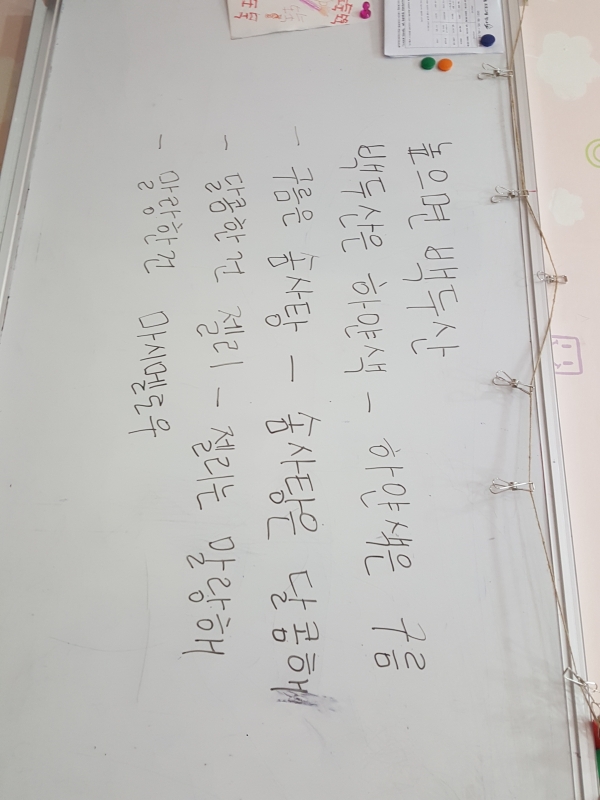 높으면 백두산
백두산은 하얀색 - 하얀색은 구름
- 구름은 솜사탕 - 솜사탕은 달콤해
- 달콤한건 젤리 - 젤리는 말랑해
- 말랑한건 마시멜로우